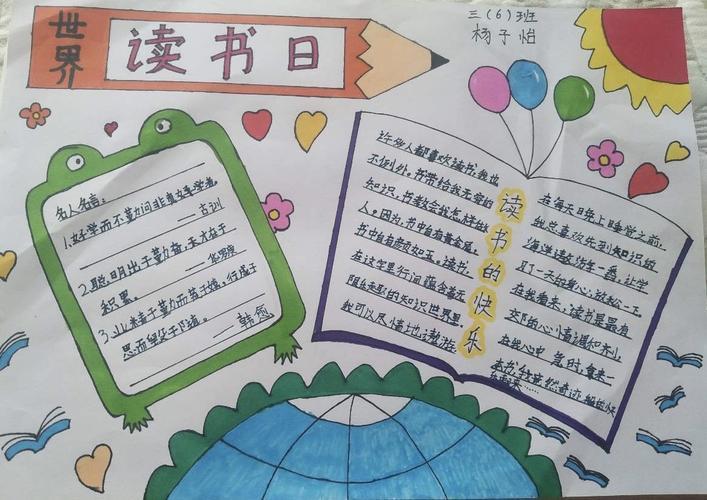 世界
读书日
三(6)班
杨子怡
名人名言:
1.好学而不勤问非真好学者。
——古训
2.聪明出于勤奋,天才在于
积累。——华罗庚
3.业精于勤而荒于嬉,行成于
思而毁于随。——韩愈
读书的快乐
许多人都喜欢读书,我也
不例外。书带给我无穷的
知识,书教会我怎样做
人。因为,书中自有黄金屋,
书中自有颜如玉。读书,
在这字里行间蕴含着无
限的知识世界里,
我可以尽情地遨游
在每天晚上睡觉之前,
我总喜欢先到知识的
海洋遨游一番,让学
了一天的身心放松一下。
在我看来,读书是最有
效的心情调和剂。
在我心中 急时,拿来一
本书,